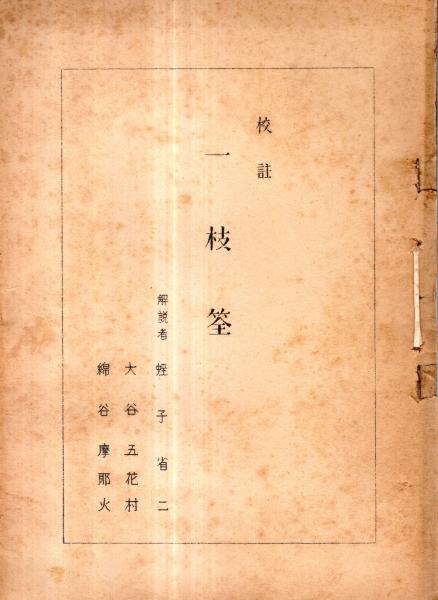 校註
一枝筌
解説者 蛭子省二
大谷五花村
綿谷摩耶火